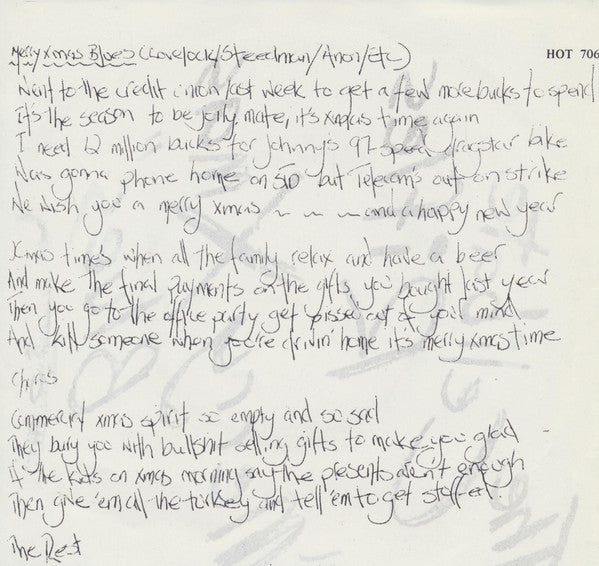 Merry Xmas Blues (Lovelock/Steedman/Anon/Etc)
HOT 706
Went to the credit union last week to get a few more bucks to spend
It's the season to be jolly, mate, it's xmas time again
I need 12 million bucks for Johnny's 97 speed dragstar bike
Was gonna phone home on STD but Telecom's out on strike
We wish you a merry xmas ~ ~ ~ and a happy new year
Xmas time's when all the family relax and have a beer
And make the final payments on the gifts you bought last year
Then you go to the office party get pissed out of your mind
And kill someone when you're drivin' home it's merry xmas time
Chorus
Commercial xmas spirit so empty and so sad
They bury you with bullshit selling gifts to make you glad
If the kids on xmas morning say the presents aren't enough
Then give 'em all the turkey and tell 'em to get stuffed.
The Rest